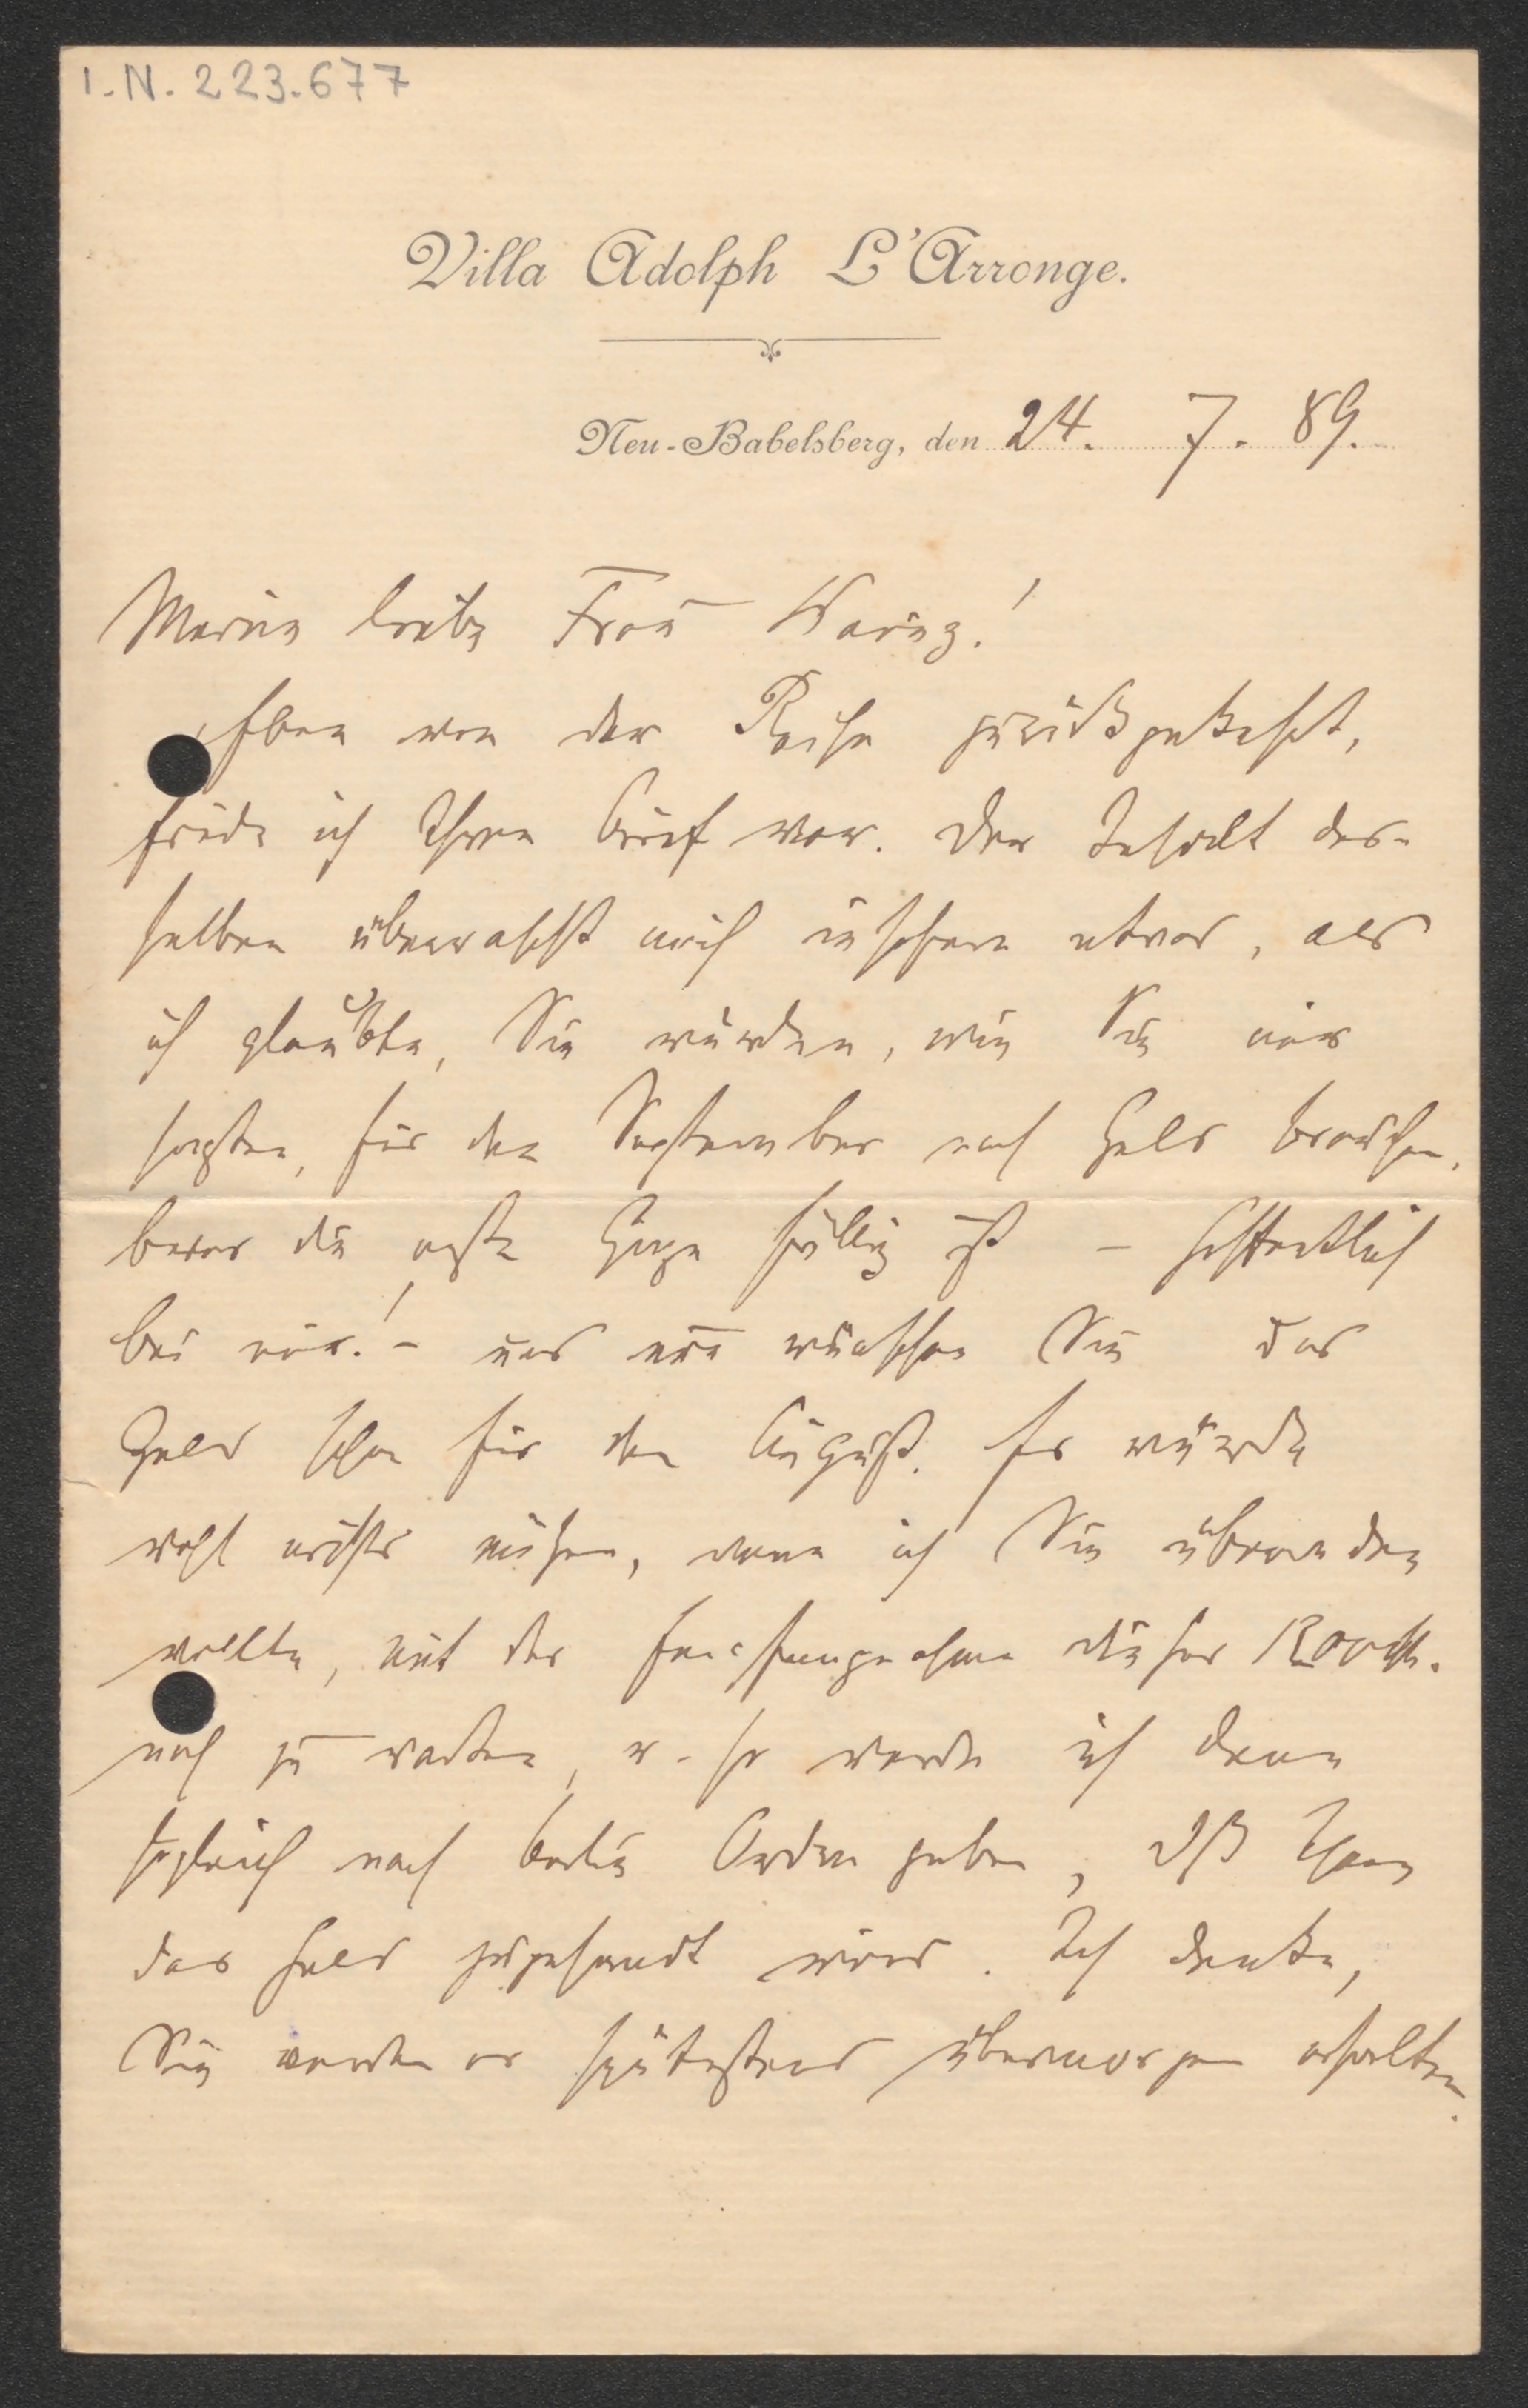 I.N. 223.677
Villa Adolph L'Arronge.
Neu-Babelsberg, den 24. 7. 89.
Meine liebe Frau
Eben von der Reise zurückgekehrt,
finde ich Ihren Brief vor. Der Inhalt des-
selben überrascht mich insofern etwas, als
ich glaubte, Sie würden, wie Sie mir
sagten, für den September noch Geld brauchen,
bevor die erste Gage fällig ist – hoffentlich
bei mir! – und nun wünschen Sie das
Geld schon für den August. Es würde
wohl nichts nützen, wenn ich Sie überreden
wollte, mit der Inempfangnahme dieser 1200 M.
noch zu warten, u. so werde ich denn
sogleich nach Berlin Ordre geben, daß Ihnen
das Geld zugesandt wird. Ich denke,
Sie werden es spätestens übermorgen erhalten.